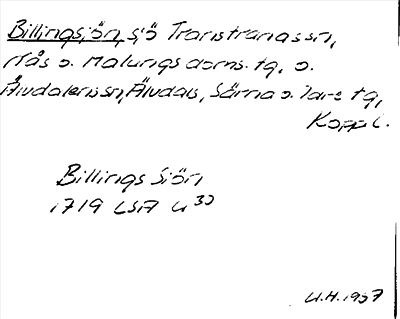 Billingsjön, sjö Transtrands sn,
Nås o. Malungs doms. tg. o.
Älvdalens sn, Älvdals, Särna o. Idre tg,
Kopp. l.
Billings Siön
1719 LSA U 30
U.H. 1957